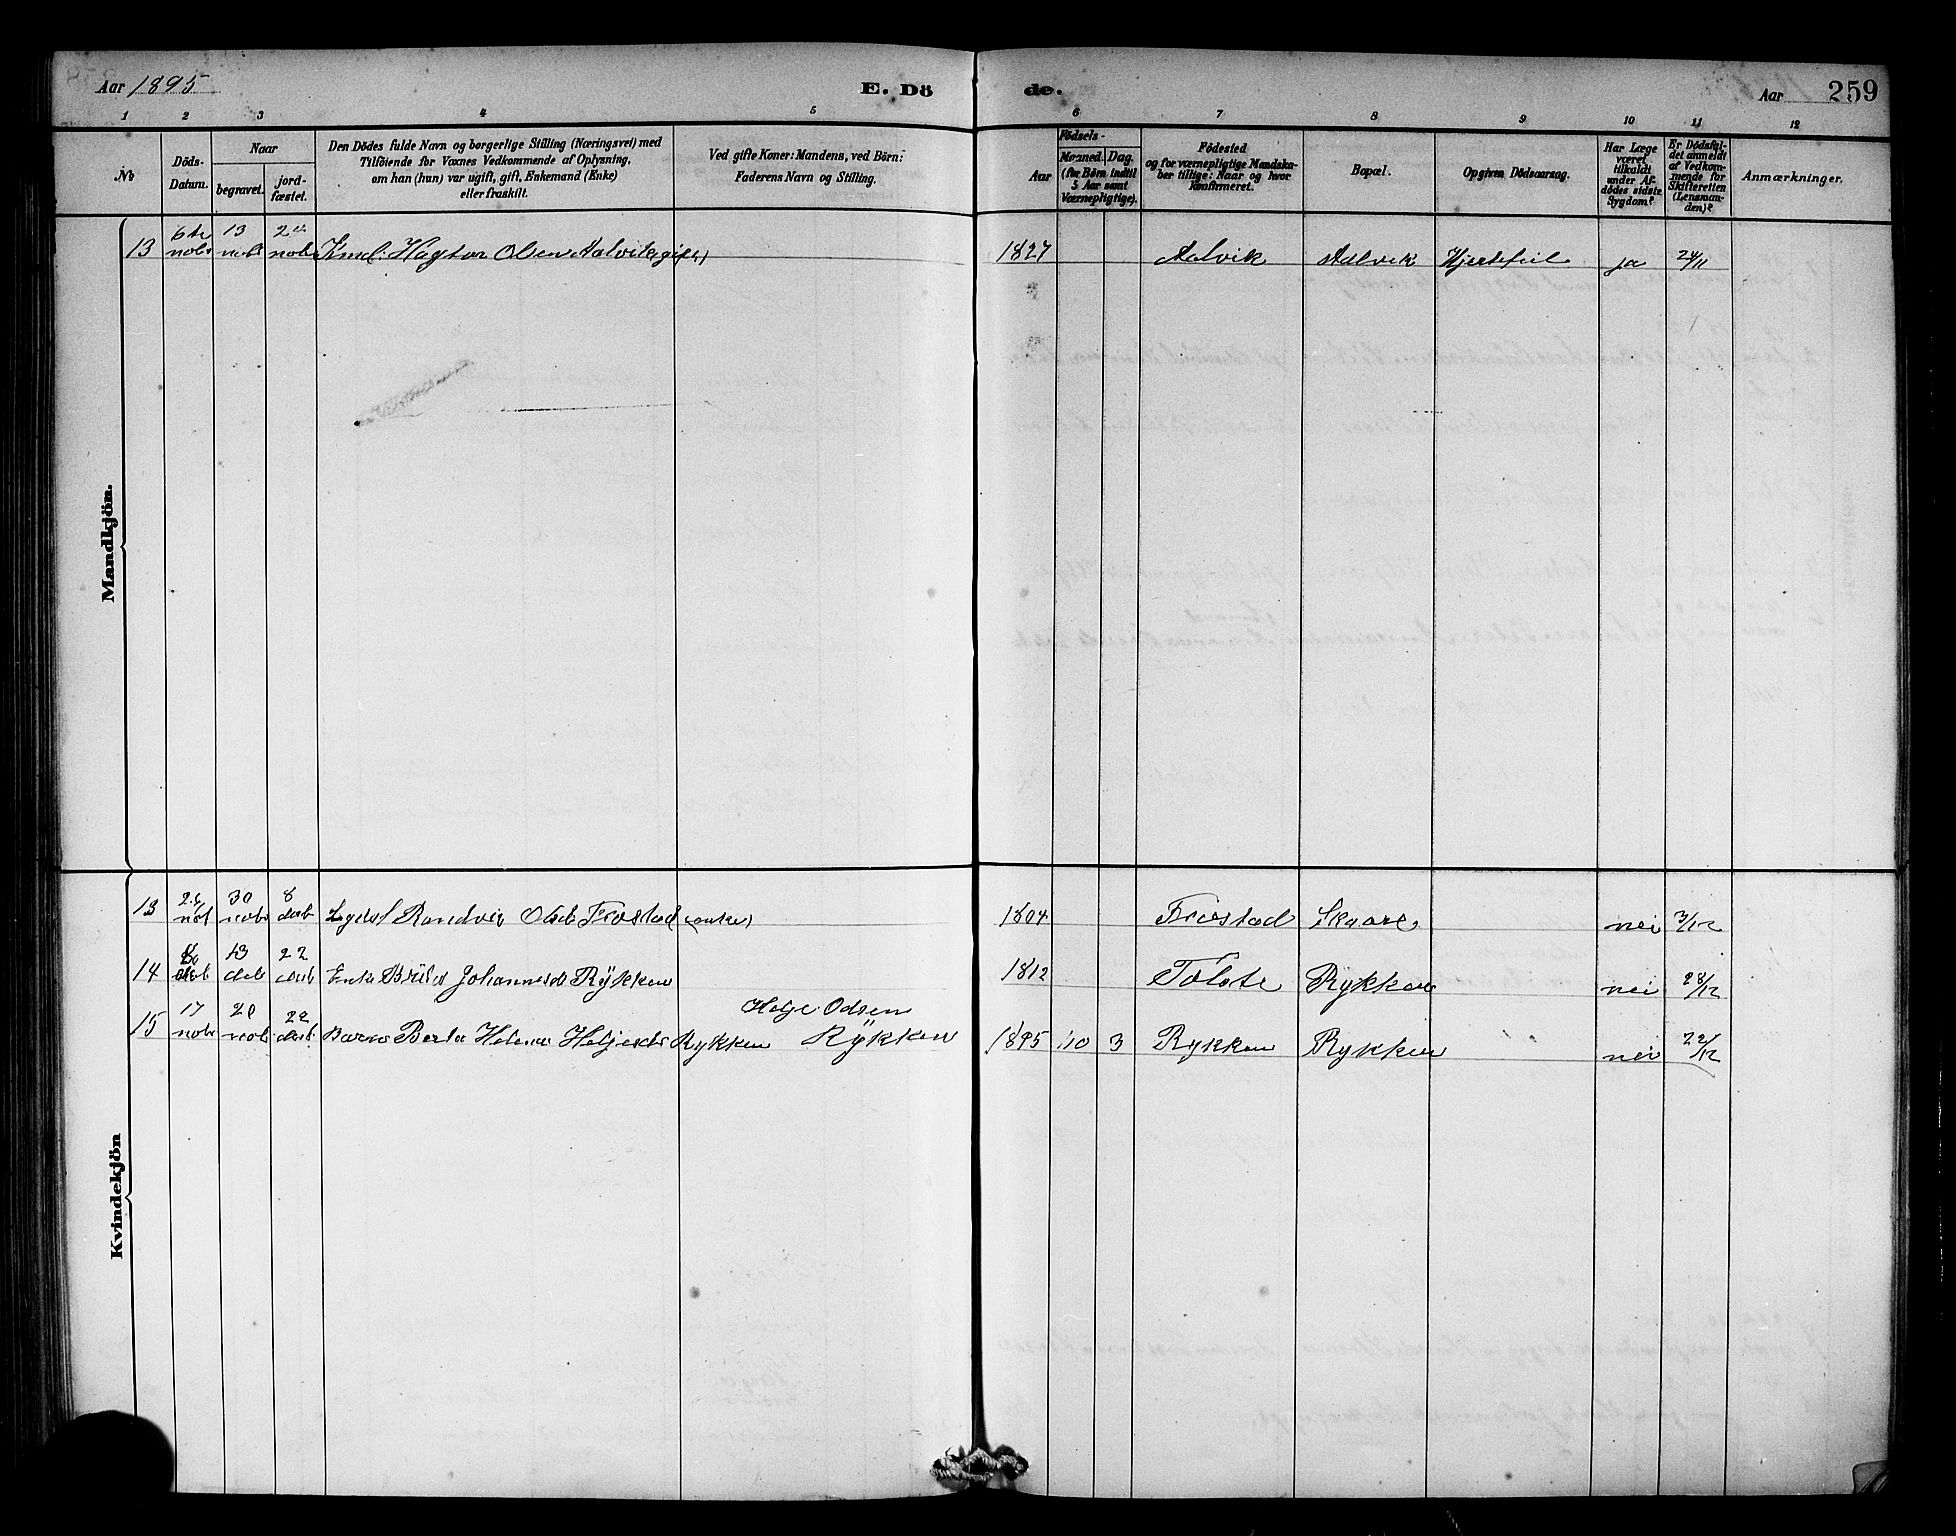 Aar 1895 E. Dö de. Aar 259
1 2 3 4 5 6 7 8 9 10 11 12
No
Döds-Datum.
Naar
begravet.
jord-fæstet.
Den Dödes fulde Navn og borgerlige Stilling (Næringsvei) med
Tilföiende for Voxnes Vedkommende af Oplysning,
om han (hun) var ugift, gift, Enkemand (Enke)
eller fraskilt.
Ved gifte Koner: Mandens, ved Börn:
Faderens Navn og Stilling.
Födsels-
Aar
Maaned. Dag.
(for Börn indtil
5 Aar samt
Værnepligtige).
Födested
og for værnepligtige Mandska-
ber tillige: Naar og hvor
Konfirmeret.
Bopæl.
Opgiven Dödsaarsag.
Har Læge
været
tilkaldt
under Af-
dödes sidste
Sygdom?
Er Dödsfal-
det anmeldt
af Vedkom-
mende for
Skifteretten
(Lensman-
den)?
Anmærkninger.
Mandkjön.
13 6te nobr 13 nobr nobr Olsen Aalvik gift) 1827 Aalvik Aalvik Hjertefeil ja 24/11
Kvindekjön
13 30 nobr 8 Randvei Frostad (enke) 1804 Frostad Skaare nei 3/12
14 13 deb 22 Enke Johannesd Rÿkken 1812 Tolote Rykken nei 28/12
Helje Odsen
15 17 nobr 20 nobr 22 Barne Berta Helena Heljesdr Rykken Rÿkken 1895 10 3 Rykken Rykken nei 22/12